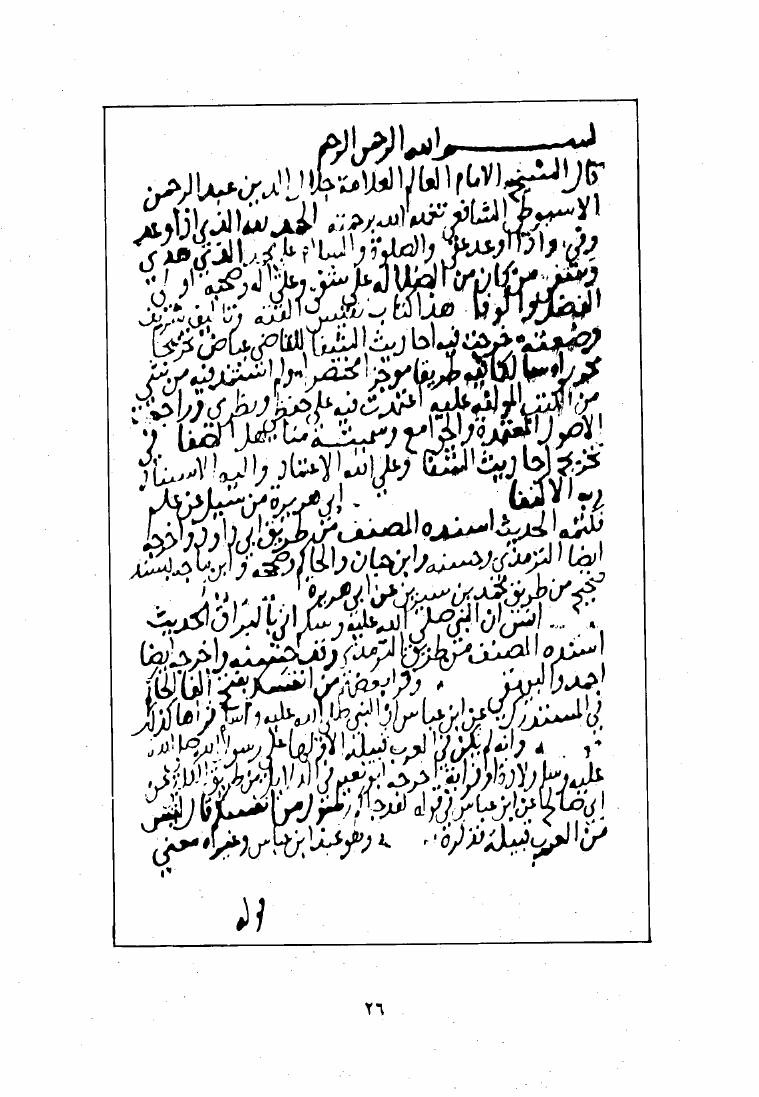 بسم الله الرحمن الرحيم
قال الشيخ الامام العالم العلامة جلال الدين عبد الرحمن
الاسيوطي الشافعي تغمده الله برحمته الحمد لله الذي اذا وعد
وفي واذا اوعد عفى والصلوة والسلام على محمد الذي هدى
من كان من الضلالة على شفى وعلى آله وصحبه اولي
الفضل والوفا هذا كتاب نفيس وتاليف شريف
وضعته خرجت فيه احاديث الشفا للقاضي عياض تخريجا
محررا سالكا فيه طريقا موجزا مختصرا استمد فيه من شي
من الكتب المولفه عليه اعتمدت فيه على حفظي ونظري وراجعت
الاصول المعتمدة والجوامع وسميته مناهل الصفا في
تخريج احاديث الشفا وعلى الله الاعتماد واليه الاستناد
وبه الاكتفا ابي هريرة من سيل عن علم
فكتمه الحديث اسنده المصنف من طريق ابي داود واخرجه
ايضا الترمذي وحسنه وابن حبان والحاكم وصححه وابن ماجه بسند
صحيح من طريق محمد بن سيرين عن ابي هريرة
انس ان النبي صلى الله عليه وسلم اتي بالبراق الحديث
اسنده المصنف من طريق الترمذي وقد حسنه واخرجه ايضا
احمد والبيهقي وقرا بعضهم من انفسكم بفتح الفا الحاكم
في المستدرك عن ابن عباس ان النبي صلى الله عليه وسلم قراها كذلك
وانه لم يكن في العرب قبيلة الا ولها على رسول الله صلى الله
عليه وسلم ولادة او قرابة اخرجه ابو نعيم في الدلايل من طريق عن
ابي صالح عن ابن عباس في قوله لقد جاءكم رسول من انفسكم قال ليس
من العرب قبيلة فذكره وهو عند ابن عباس وغيره معني
قوله
٢٦